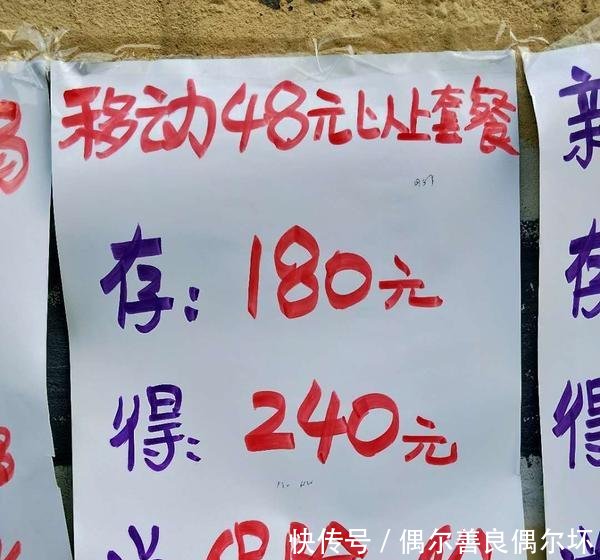 移动48元以上套餐
存：180元
得：240元
新
存
得
快传号 / 偶尔善良偶尔坏